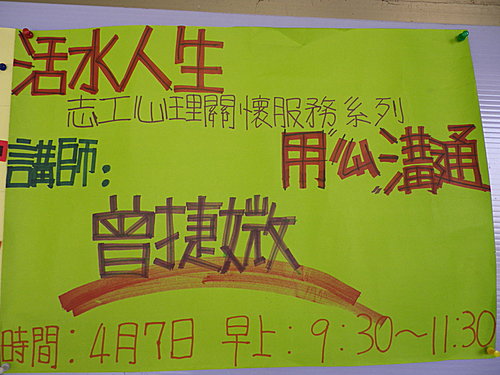 活水人生
志工心理關懷服務系列
用"心"溝通
講師:
曾捷媺
時間:4月7日 早上:9:30~11:30